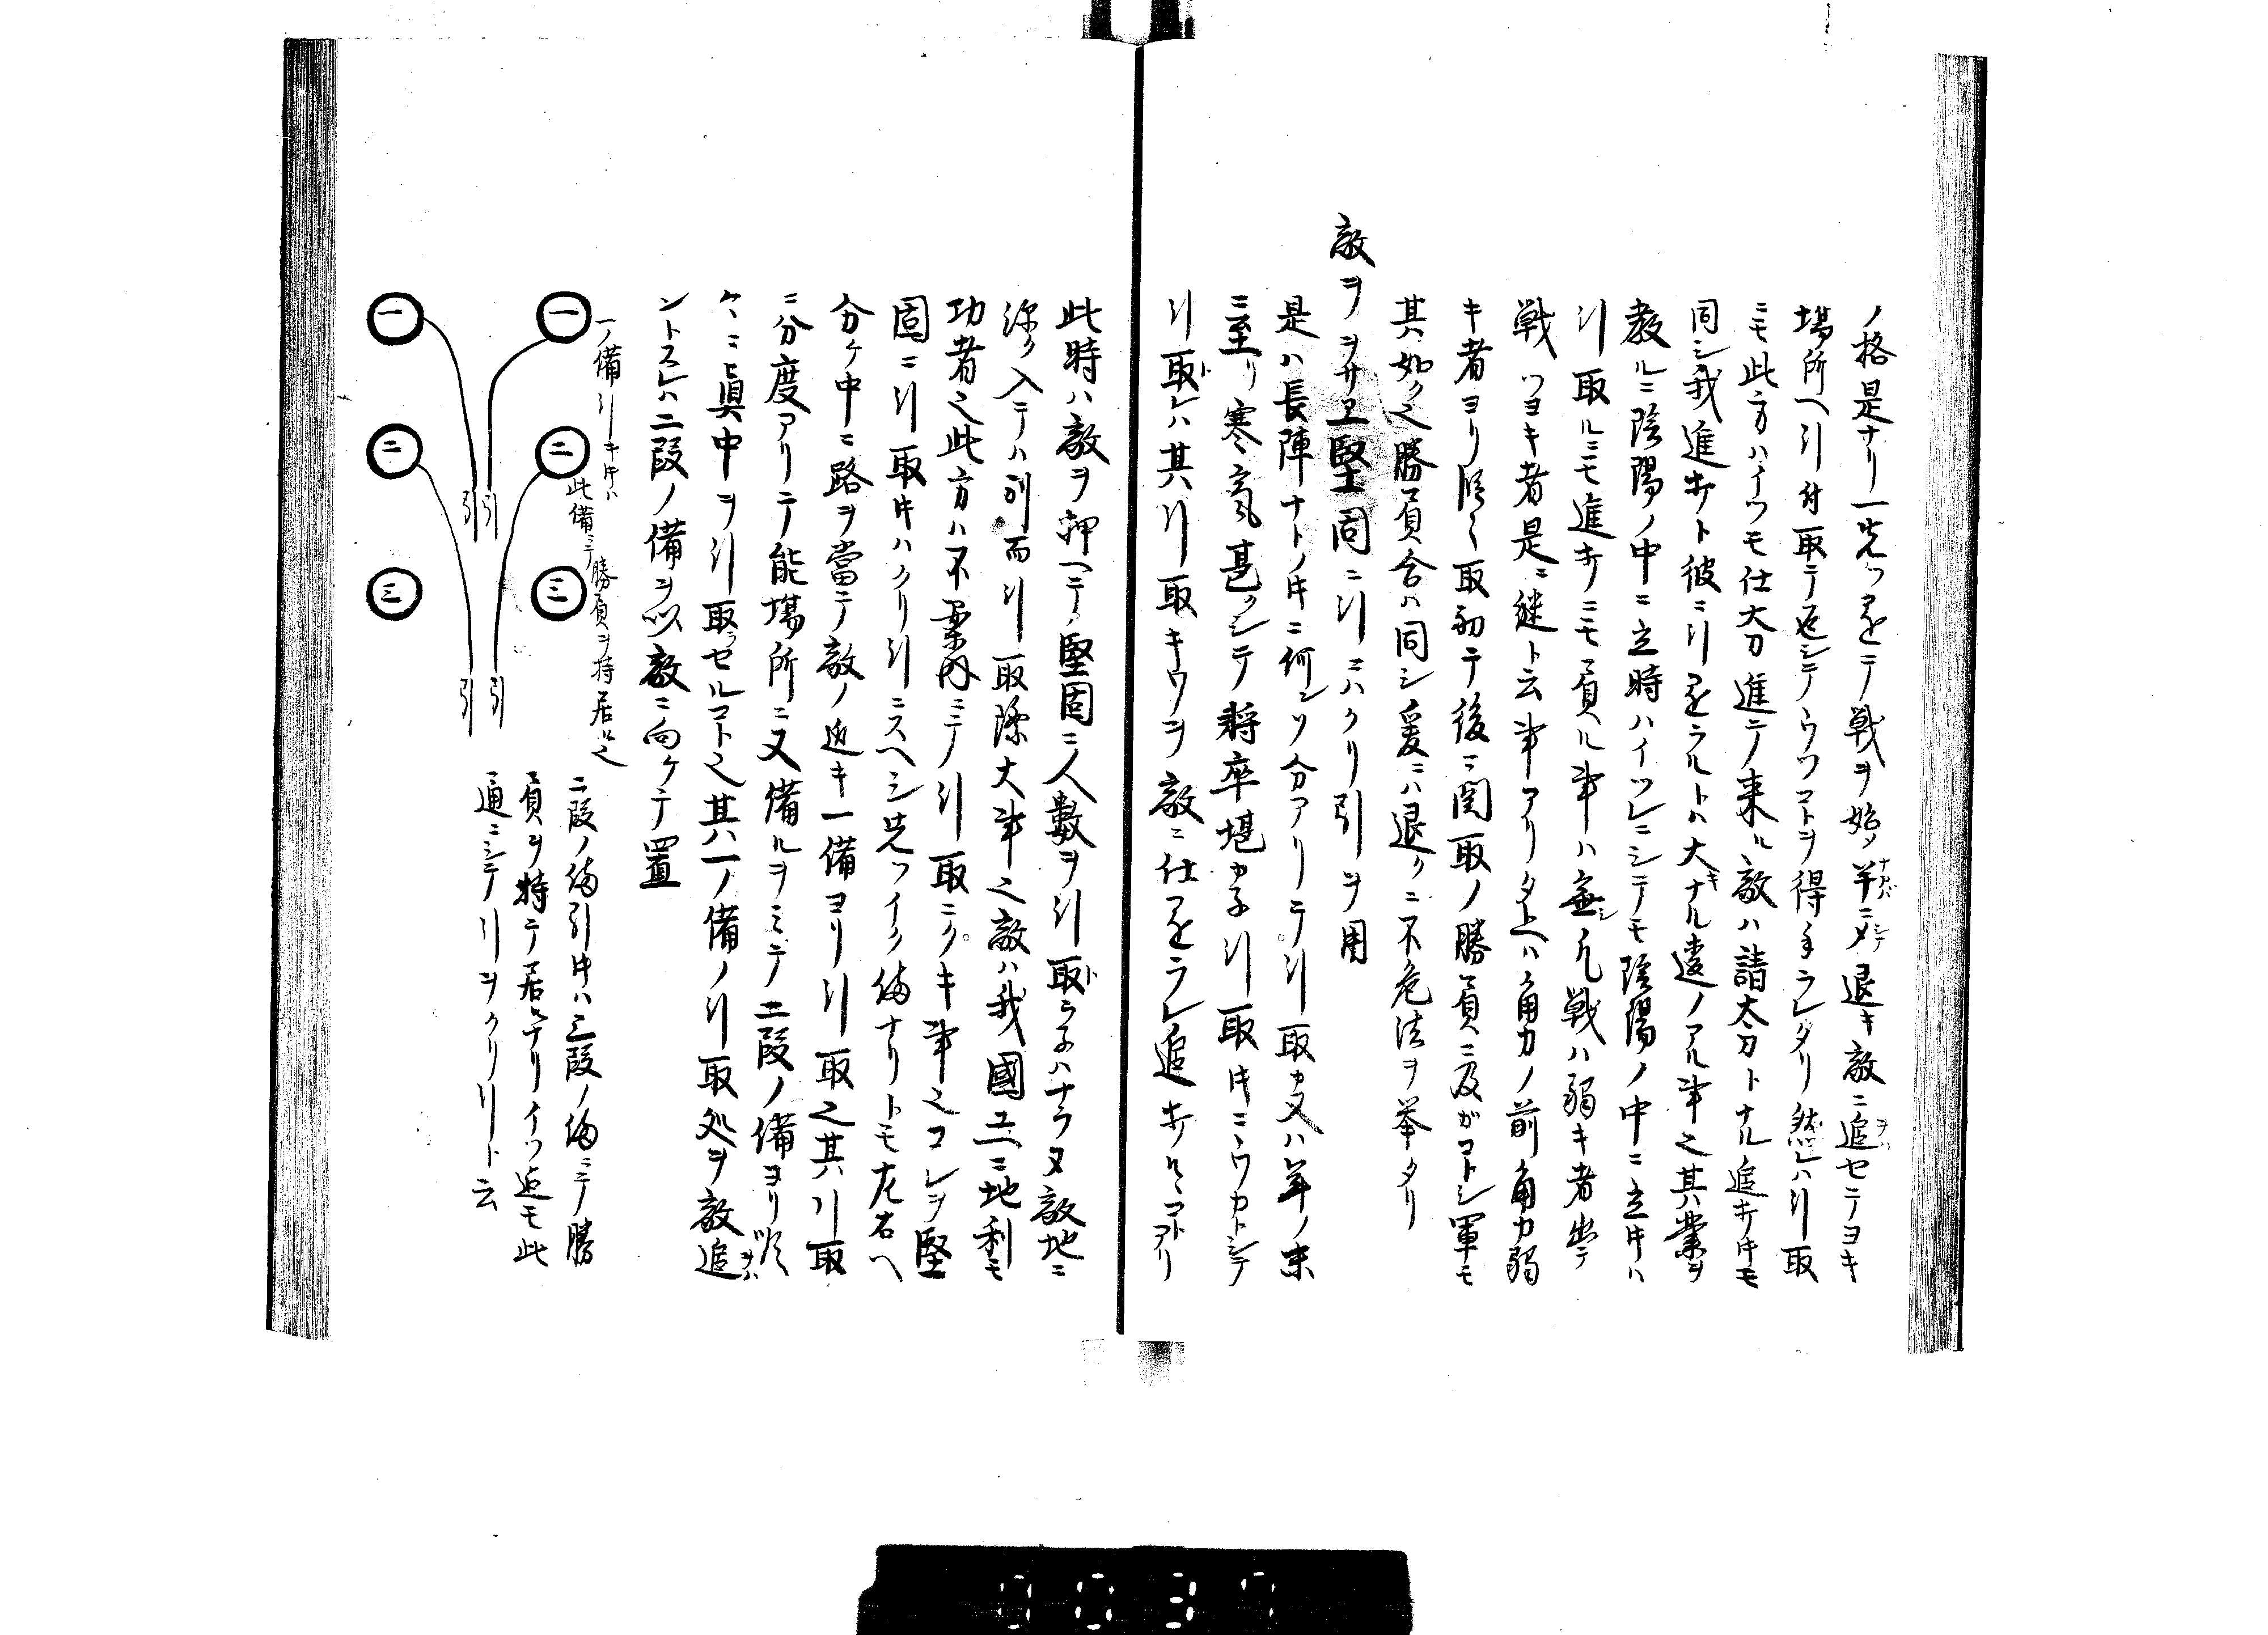 ノ格是ナリ一先ツ是ニテ戦ヲ始メ半ニシテ退キ敵ニ追セテヨキ
場所ヘ引付取テ返シテウツコトヲ得手ラレタリ然レハ引取
ニモ此方ハイツモ仕大刀進ニテ来ル敵ハ請大刀トナル追キ時モ
同シ我進キト彼ニ引ヲラルトハ大ナル違ノアル事之其業ヲ
教ルニ陰陽ノ中ニ立時ハイツレニシテモ陰陽ノ中ニ立時ハ
引取ルニモ進キノニモ負ル事ハ無シ凡戦ハ弱キ者出テ
戦ツヨキ者是ニ継ト云事アリタトヘハ角力ノ前角力弱
キ者ヨリ段々取初テ後ニ関取ノ勝負ニ及ガコトシ軍モ
其如ク之勝負合ハ同シ爰ニハ退クニ不危法ヲ挙タリ
敵ヲヲサヱ堅固ニ引ニハクリ引ヲ用
是ハ長陣ナトノ時ニ何ソ分アリテ引取カ又ハ年ノ末
ニ至リ寒氣甚クシテ将卒堪カネ引取時ニウカトシテ
引取レハ其引取キウヲ敵ニ仕ヲラレ追キルヽコトアリ
此時ハ敵ヲ押ヘテ堅固ニ人數ヲ引取ラネハナラヌ敵地ニ
深ク入テハ別而引取際大事之敵ハ我國土ニ地利モ
功者之此方ハ不案内ニテ引取ニクキ事之コレヲ堅
固ニ引取時ハクリ引ニスヘシ先ツイク備ナリトモ左右ヘ
分ケ中ニ路ヲ當テ敵ノ近キ一備ヨリ引取之其引取
ニ分度アリテ能場所ニ又備ルヲミテ二段ノ備ヨリ順
々ニ眞中ヲ引取セルコト之其ハ一ノ備ノ引取処ヲ敵追
ントスレハ二段ノ備ヲ以敵ニ向ケテ置
一ノ備引キ時ハ
此備ニテ勝負ヲ持居ル之
一 一
二 二
三 三
引 引
引 引
二段ノ備引時ハ三段ノ備ニテ勝
負ヲ持テ居ルナリイツ迄モ此
通ニシテ引ヲクリ引ト云